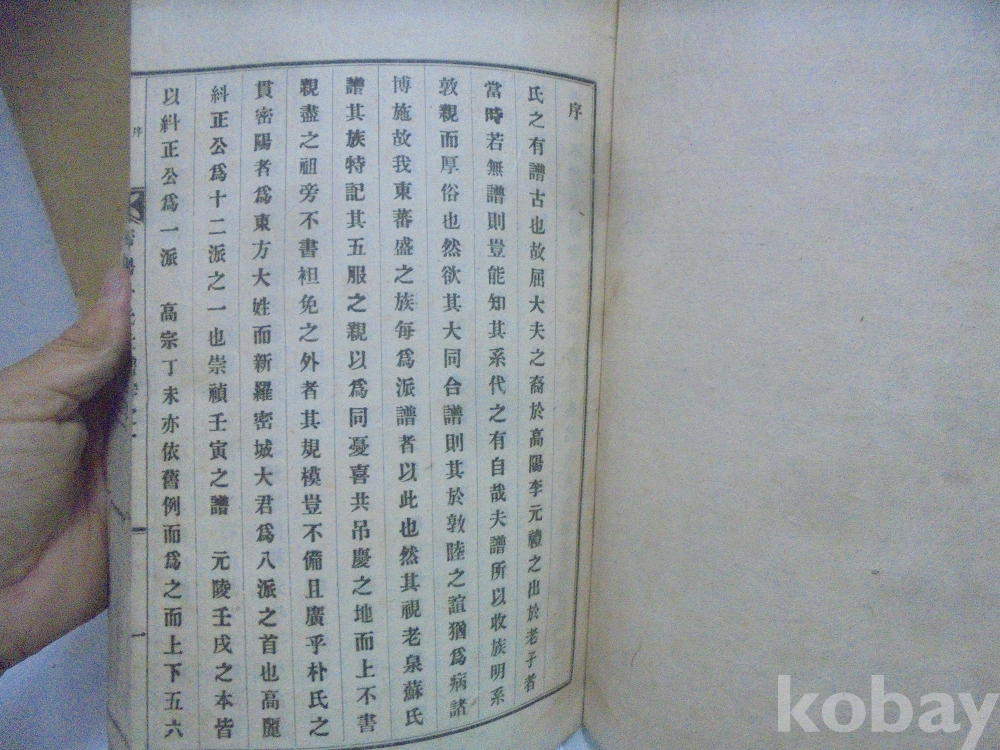 序
氏之有譜古也故屈大夫之裔於高陽李元禮之出於老子者
當時若無譜則豈能知其系代之有自哉夫譜所以收族明系
敦親而厚俗也然欲其大同合譜則其於敦陸之誼猶爲病諸
博施故我東蕃盛之族每爲派譜者以此也然其視老泉蘇氏
譜其族特記其五服之親以爲同憂喜共吊慶之地而上不書
親盡之祖旁不書袒免之外者其規模豈不備且廣乎朴氏之
貫密陽者爲東方大姓而新羅密城大君爲八派之首也高麗
糾正公爲十二派之一也崇禎壬寅之譜 元陵壬戌之本皆
以糾正公爲一派 高宗丁未亦依舊例而爲之而上下五六
序
一
kobay